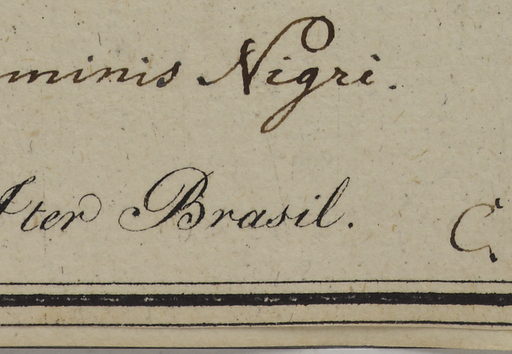 minis Nigri.
Iter Brasil. C.